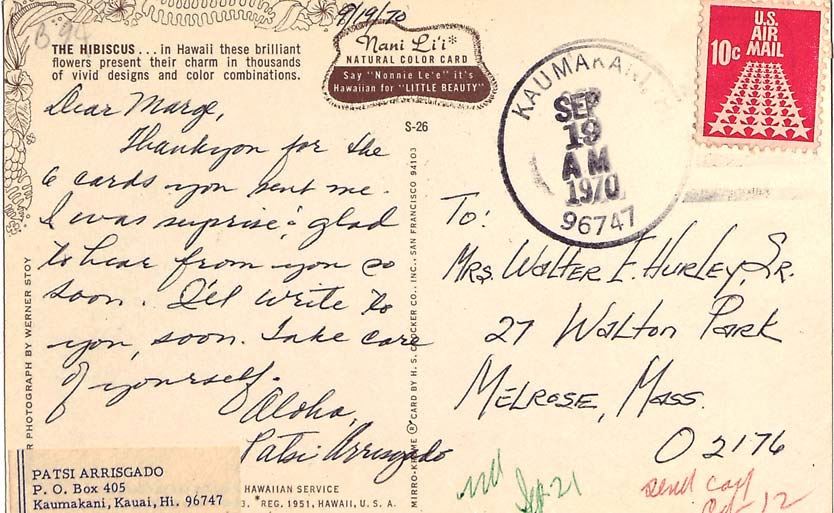 9/19/70
B-94
THE HIBISCUS... in Hawaii these brilliant
flowers present their charm in thousands
of vivid designs and color combinations.
Nani Li'i*
NATURAL COLOR CARD
Say "Nonnie Le'e" it's
Hawaiian for "LITTLE BEAUTY"
S-26
Dear Marge,
Thankyou for the
6 cards you sent me.
I was suprise & glad
to hear from you so
soon. I'll write to
you, soon. Take care
of yourself.
Aloha,
Patsi Arrisgado
PATSI ARRISGADO
P. O. Box 405
Kaumakani, Kauai, Hi. 96747
HAWAIIAN SERVICE
*REG. 1951, HAWAII, U. S. A.
R PHOTOGRAPH BY WERNER STOY
MIRRO-KROME ® CARD BY H. S. CROCKER CO., INC., SAN FRANCISCO 94103
KAUMAKANI
SEP
19
AM
1970
96747
U.S.
AIR
MAIL
10c
To:
Mrs. Walter E. Hurley, Sr.
27 Walton Park
Melrose, Mass.
02176
Sept 21
send card
Oct 12